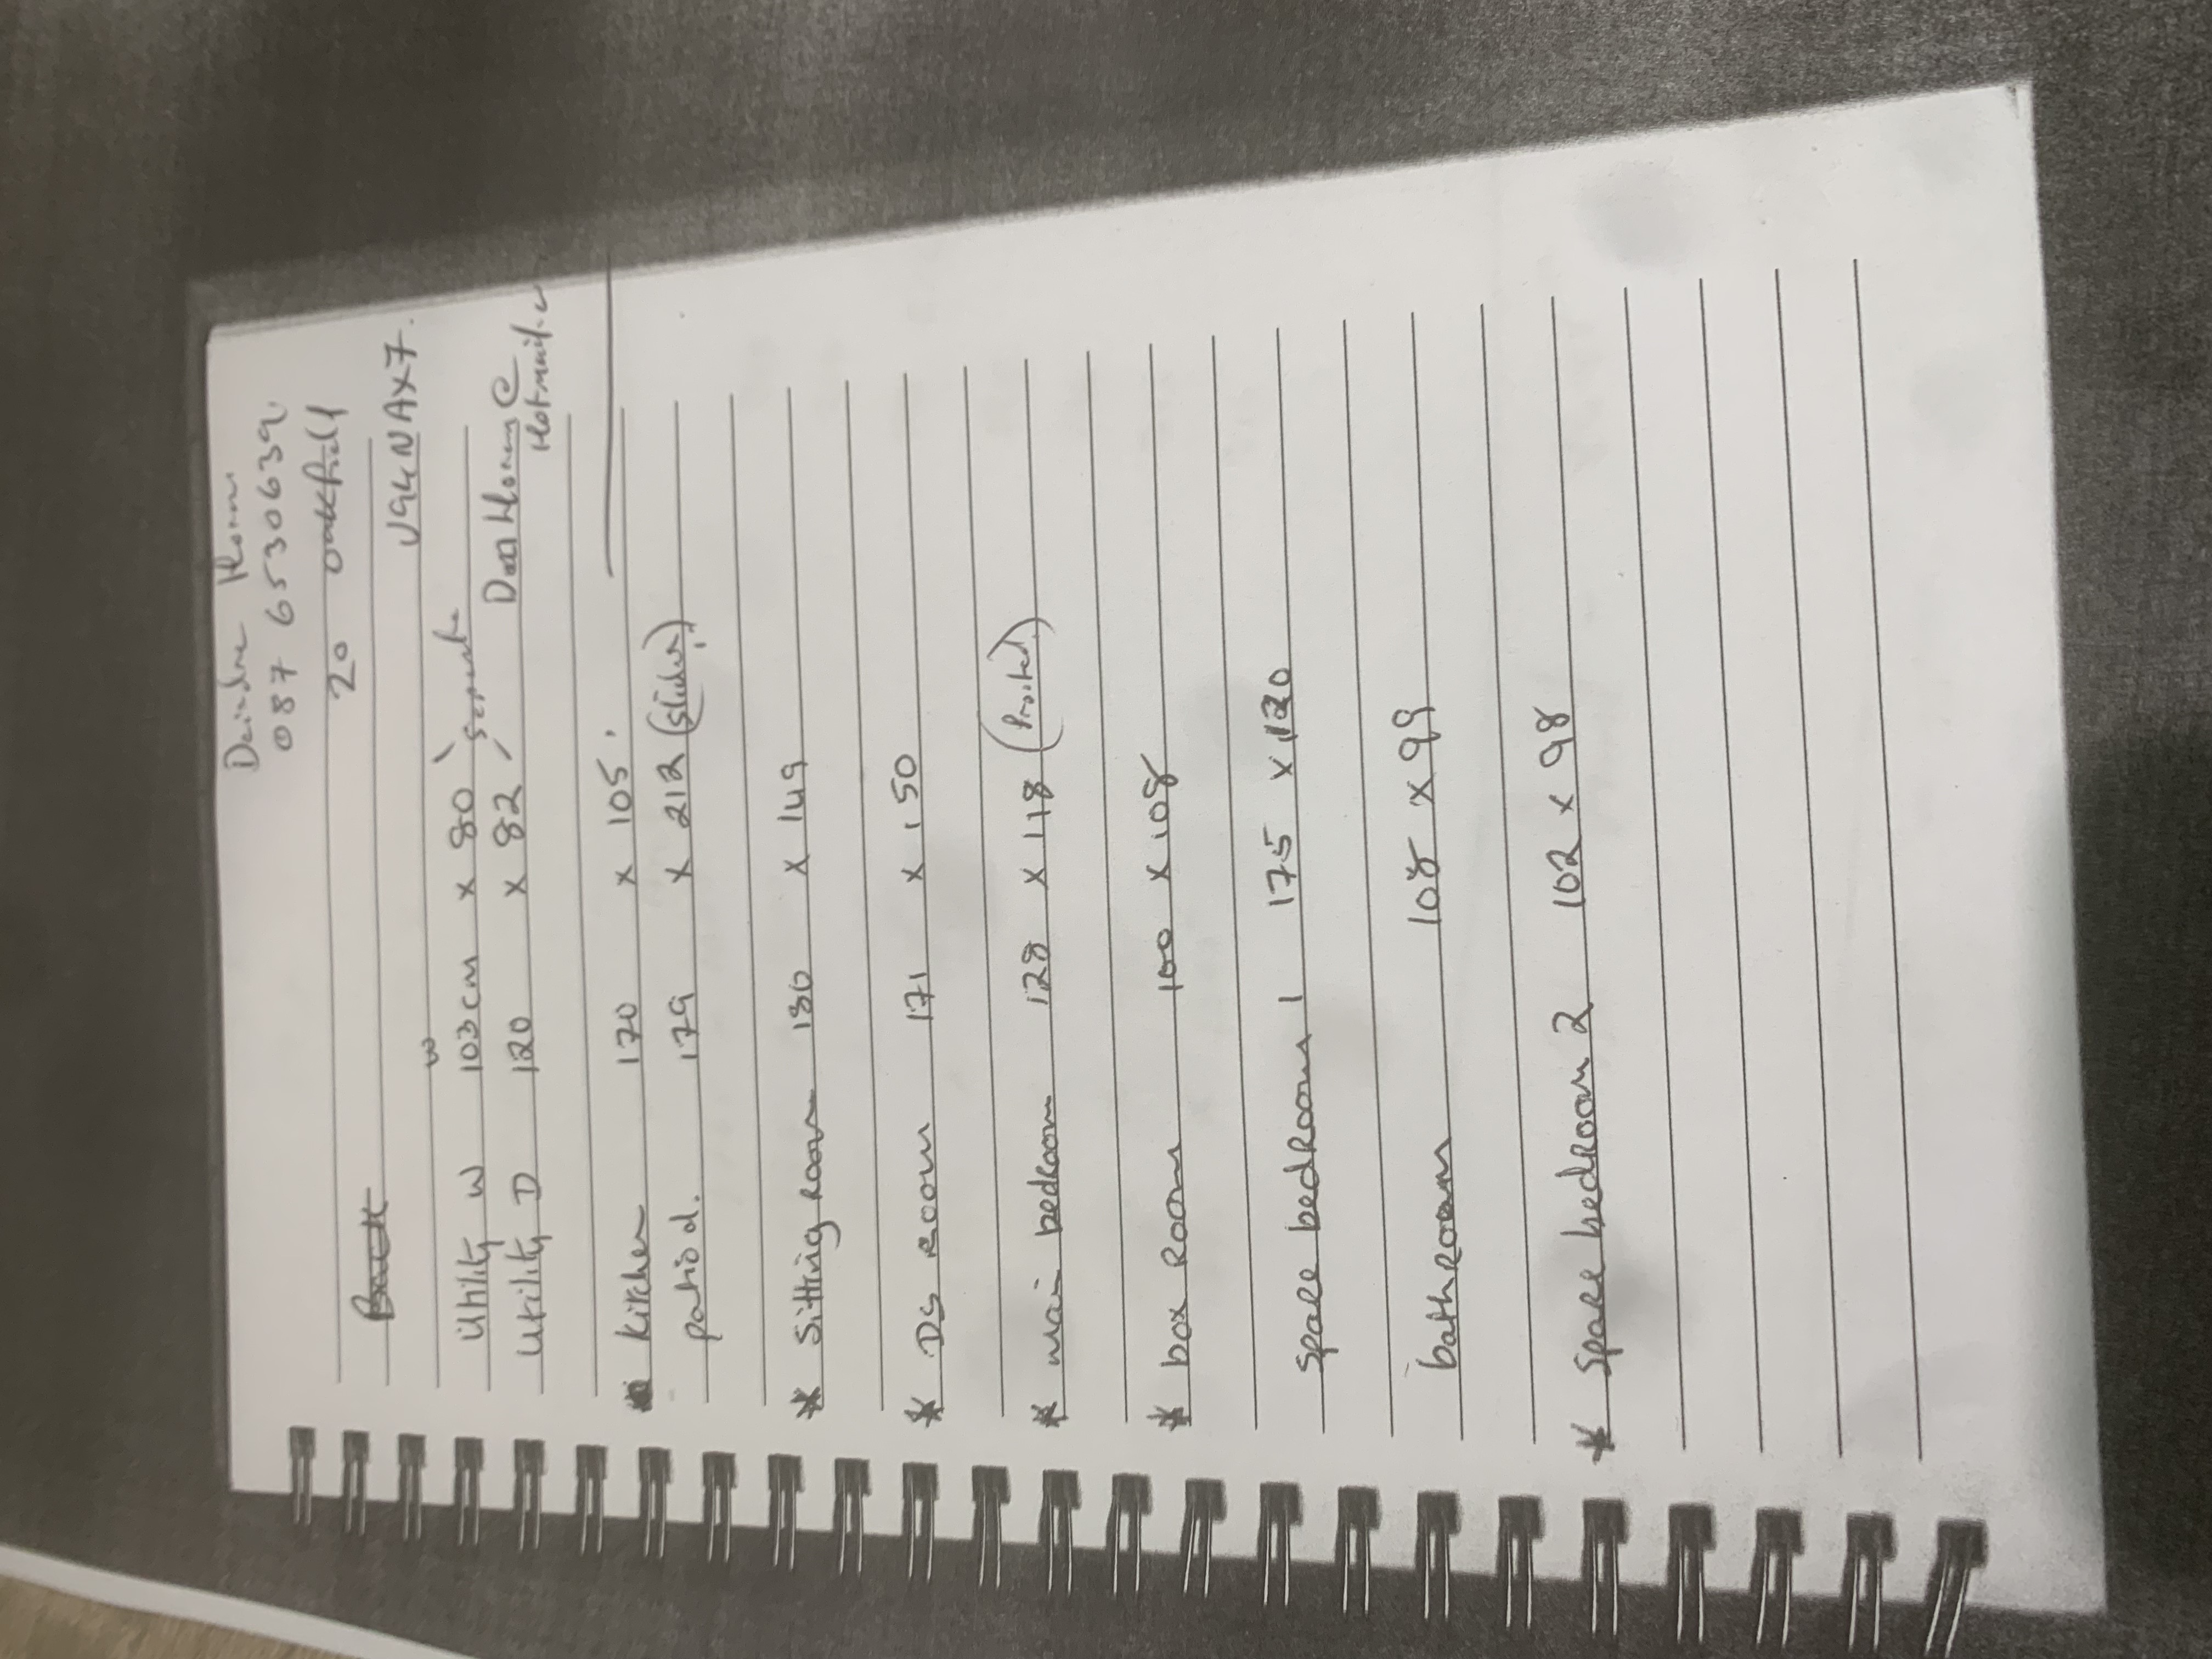 Deirdre
087 6530639
20 Oakfield
V94NAX7.
w
Utility W 103cm x 80 separate
Utility D 120 x 82
Hotmail.c
* Kitchen 170 x 105.
patio d. 179 x 212 (slider)
* Sitting Room 180 x 149
* DS Room 171 x 150
* main bedroom 128 x 118
* box Room 100 x 108
Spare bedroom 1 175 x 120
bathroom 108 x 99
* Spare bedroom 2 102 x 98